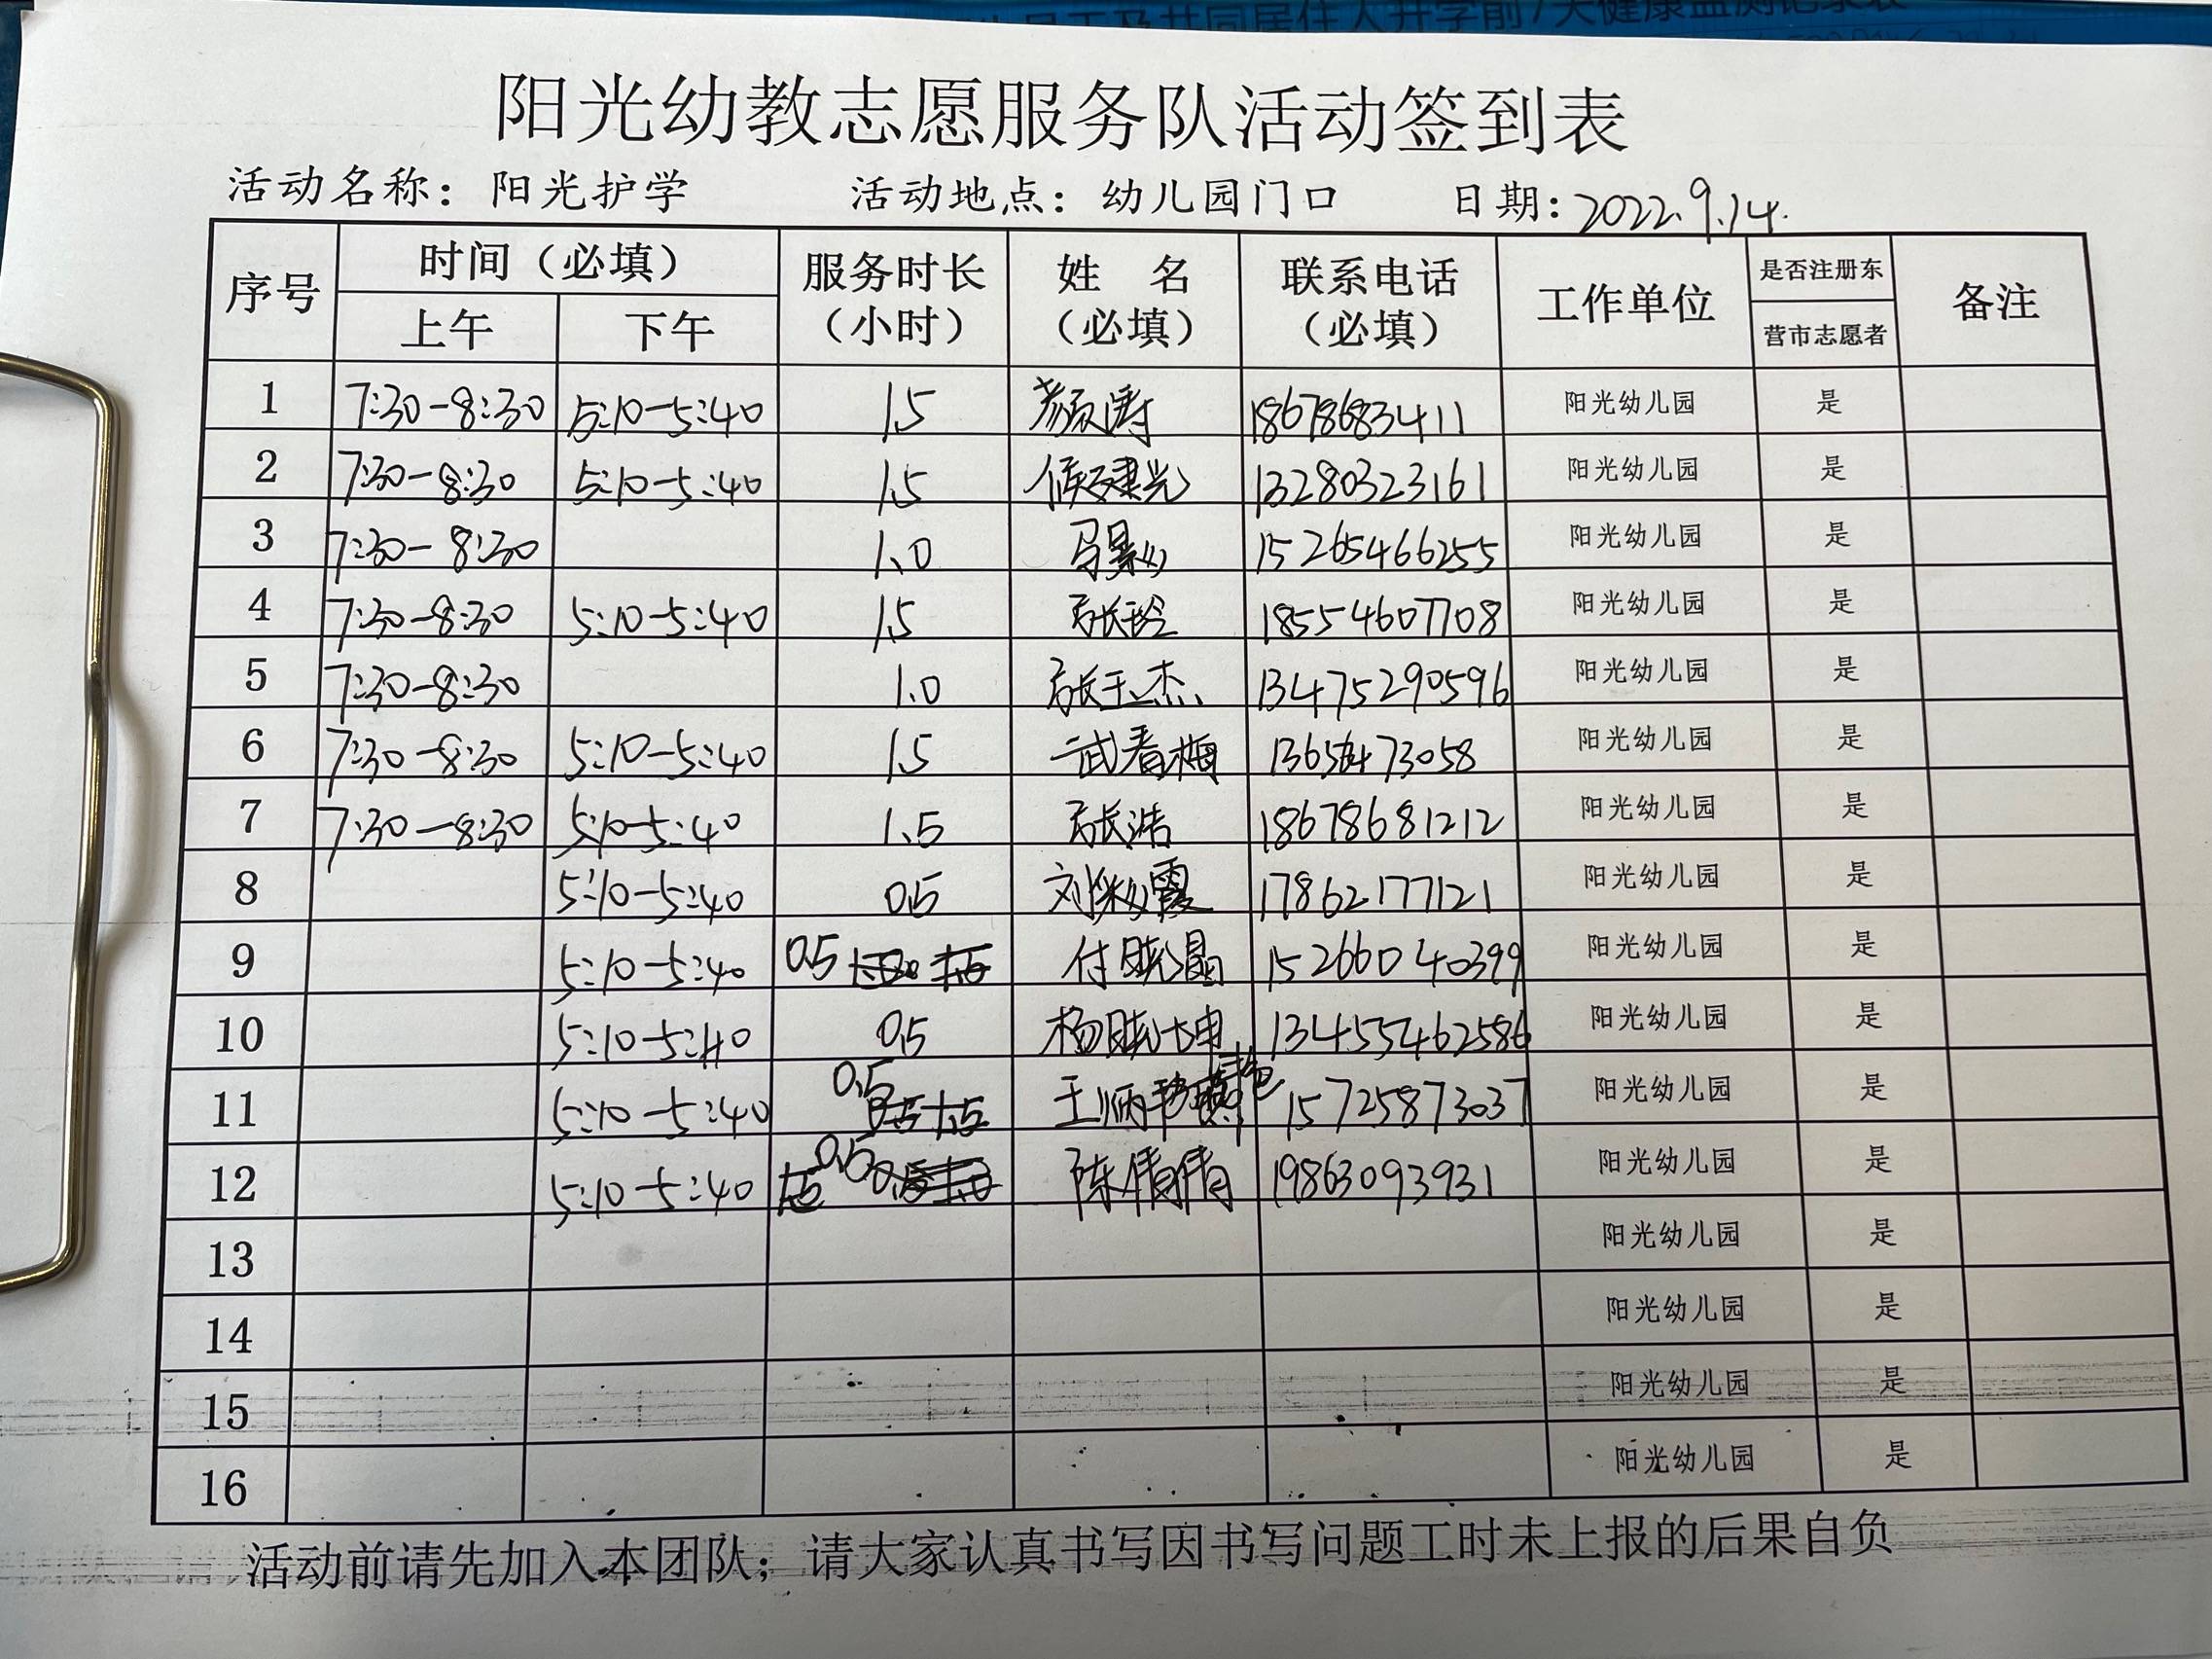 阳光幼教志愿服务队活动签到表
活动名称：阳光护学 活动地点：幼儿园门口 日期：2022.9.14.
序号 时间（必填） 上午 下午 服务时长（小时） 姓 名（必填） 联系电话（必填） 工作单位 是否注册东营市志愿者 备注
1 7:30-8:30 5:10-5:40 1.5 颜涛 18678683411 阳光幼儿园 是
2 7:30-8:30 5:10-5:40 1.5 侯建光 13280323161 阳光幼儿园 是
3 7:30-8:30 1.0 15265466255 阳光幼儿园 是
4 7:30-8:30 5:10-5:40 1.5 张玲 18554607708 阳光幼儿园 是
5 7:30-8:30 1.0 张玉杰 13475290596 阳光幼儿园 是
6 7:30-8:30 5:10-5:40 1.5 武春梅 阳光幼儿园 是
7 7:30-8:30 5:10-5:40 1.5 张浩 18678681212 阳光幼儿园 是
8 5:10-5:40 0.5 刘彩霞 17862177121 阳光幼儿园 是
9 5:10-5:40 0.5 付晓晶 15266040399 阳光幼儿园 是
10 5:10-5:40 0.5 杨晓坤 阳光幼儿园 是
11 5:10-5:40 0.5 15725873037 阳光幼儿园 是
12 5:10-5:40 0.5 陈倩倩 19863093931 阳光幼儿园 是
13 阳光幼儿园 是
14 阳光幼儿园 是
15 阳光幼儿园 是
16 阳光幼儿园 是
活动前请先加入本团队；请大家认真书写因书写问题工时未上报的后果自负